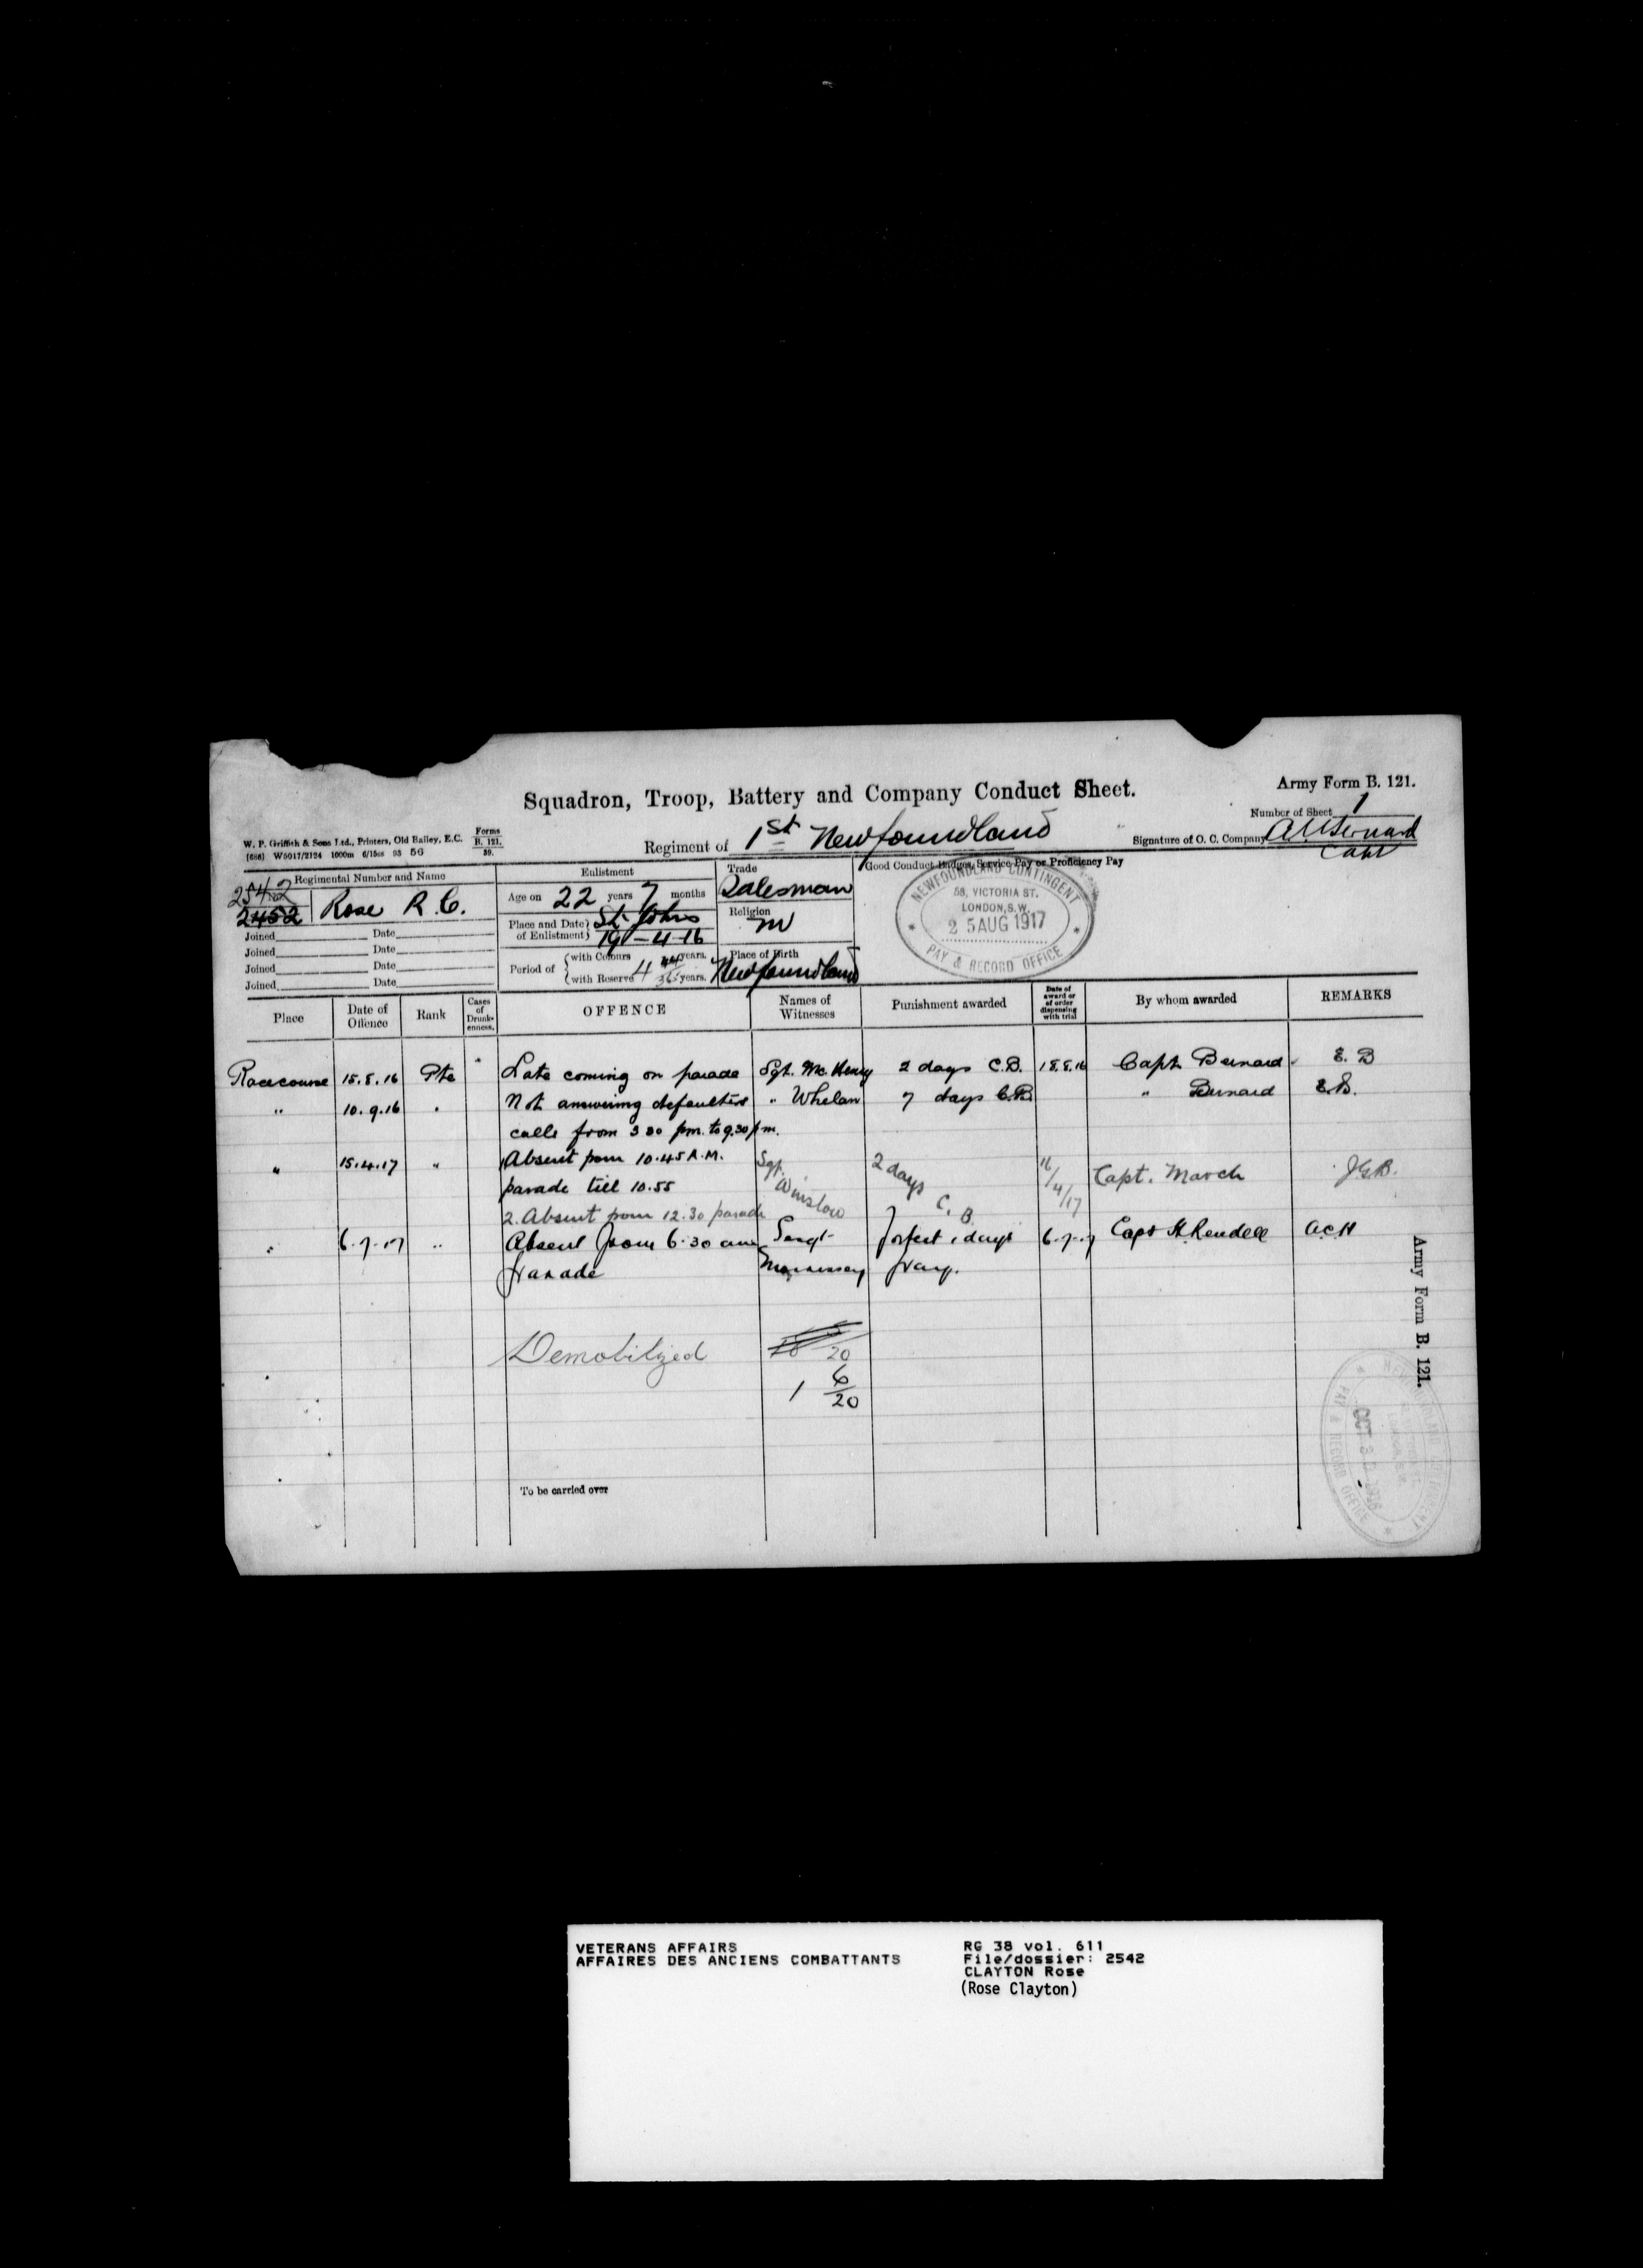 Squadron, Troop, Battery and Company Conduct Sheet.
Army Form B. 121.
Number of Sheet 1
W. P. Griffith & Sons Ltd., Printers, Old Bailey, E.C.
Forms B. 121. 39.
Regiment of 1st Newfoundland
Signature of O. C. Company
Capt
Regimental Number and Name
2542
2452 Rose R. C.
Joined Date
Joined Date
Joined Date
Joined Date
Enlistment
Age on 22 years 7 months
Place and Date of Enlistment St. Johns
19-4-16
Period of with Colours years.
with Reserve years.
Trade
Salesman
Religion
M
Place of Birth
Newfoundland
Good Conduct Badges, Service Pay or Proficiency Pay
NEWFOUNDLAND CONTINGENT
58, VICTORIA ST.
LONDON, S.W.
25 AUG 1917
PAY & RECORD OFFICE
Place Date of Offence Rank Cases of Drunkenness. OFFENCE Names of Witnesses Punishment awarded Date of award or of order dispensing with trial By whom awarded REMARKS
Racecourse 15.8.16 Pte Late coming on parade Sgt. McHenry 2 days C.B. 18.8.16 Capt. Bernard E. B
" 10.9.16 " Not answering defaulters " Whelan 7 days C.B. " Bernard E.B.
calls from 3 30 pm. to 9.30 pm.
" 15.4.17 " 1 Absent from 10.45 A.M. Sgt. Winslow 2 days C.B. 16/4/17 Capt. March
parade till 10.55
2. Absent from 12.30 parade
" 6.7.17 " Absent from 6.30 am Sergt forfeit 1 days 6.7.17 Capt H. Rendell A.C.H
parade pay.
Demobilized
20
1 6/20
To be carried over
Army Form B. 121.
PAY & RECORD OFFICE
VETERANS AFFAIRS
AFFAIRES DES ANCIENS COMBATTANTS
RG 38 vol. 611
File/dossier: 2542
CLAYTON Rose
(Rose Clayton)